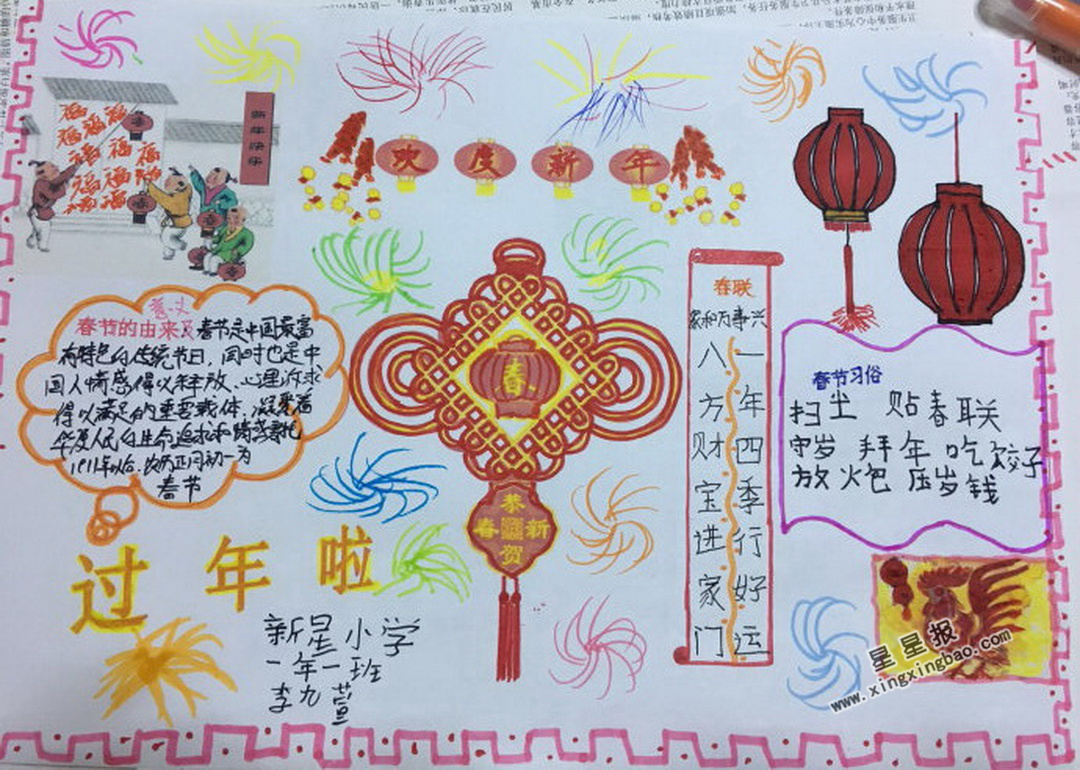 福福福福
福福福
福福
新年快乐
欢度新年
春节的由来及意义
春节是中国最富
有特色的传统节日,同时也是中
国人情感得以释放、心理诉求
得以满足的重要载体,凝聚着
华夏人民的生命追求和情感寄托
1911年以后,农历正月初一为
春节
春
恭贺新春
春联
家和万事兴
八方财宝进家门
一年四季行好运
春节习俗
扫尘 贴春联
守岁 拜年 吃饺子
放火包 压岁钱
过年啦
新星小学
一年一班
李九萱
星星报
www.xingxingbao.com